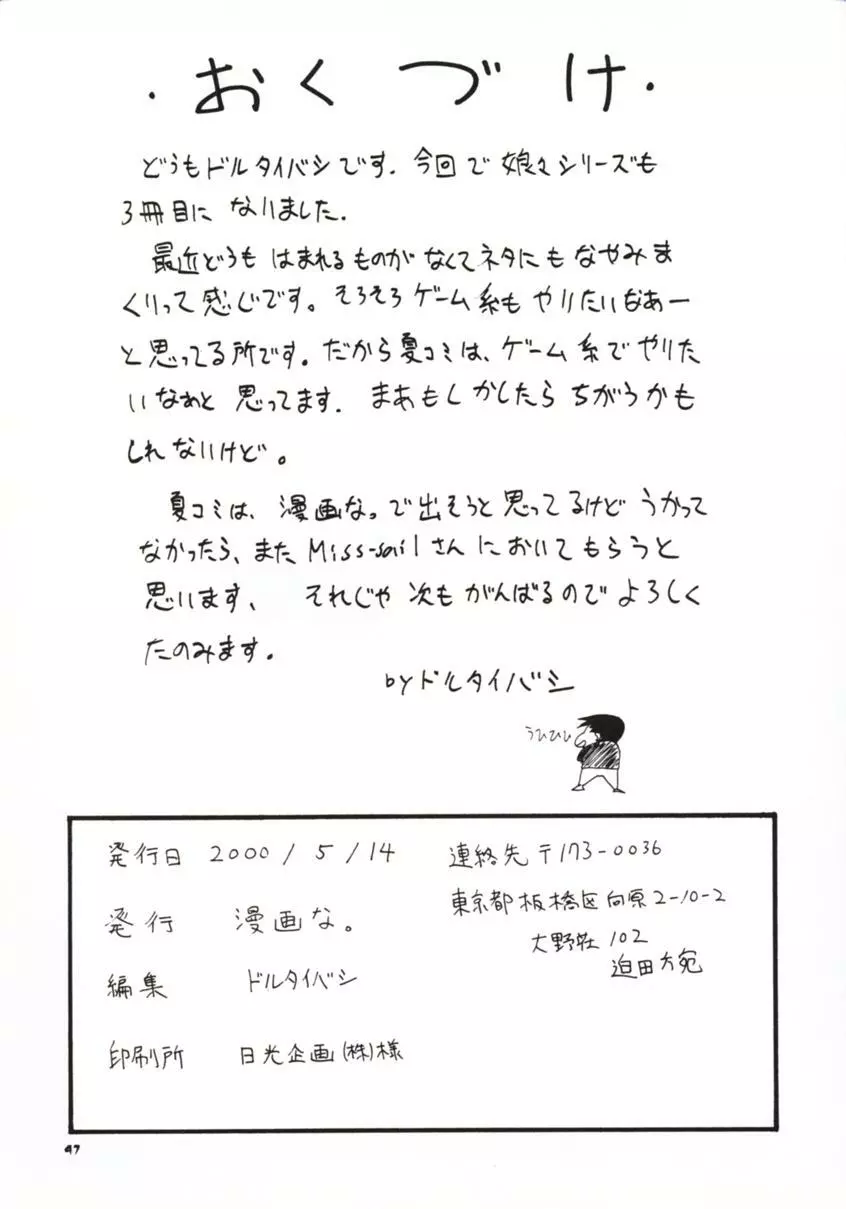 ・おくづけ・
どうもドルタイバシです. 今回で娘々シリーズも
3冊目になりました.
最近どうもはまれるものがなくてネタにもなやみま
くりって感じです。そろそろゲーム系もやりたいなあー
と思ってる所です。だから夏コミは、ゲーム系でやりた
いなぁと思ってます. まあもしかしたらちがうかも
しれないけど。
夏コミは、漫画な。で出そうと思ってるけどうかって
なかったら、また Miss-sailさんにおいてもらうと
思います、 それじゃ次もがんばるのでよろしく
たのみます。
byドルタイバシ
うひひひ
発行日 2000/5/14
発行 漫画な。
編集 ドルタイバシ
印刷所 日光企画(株)様
連絡先 〒173-0036
東京都板橋区向原2-10-2
大野荘102
迫田方宛
47